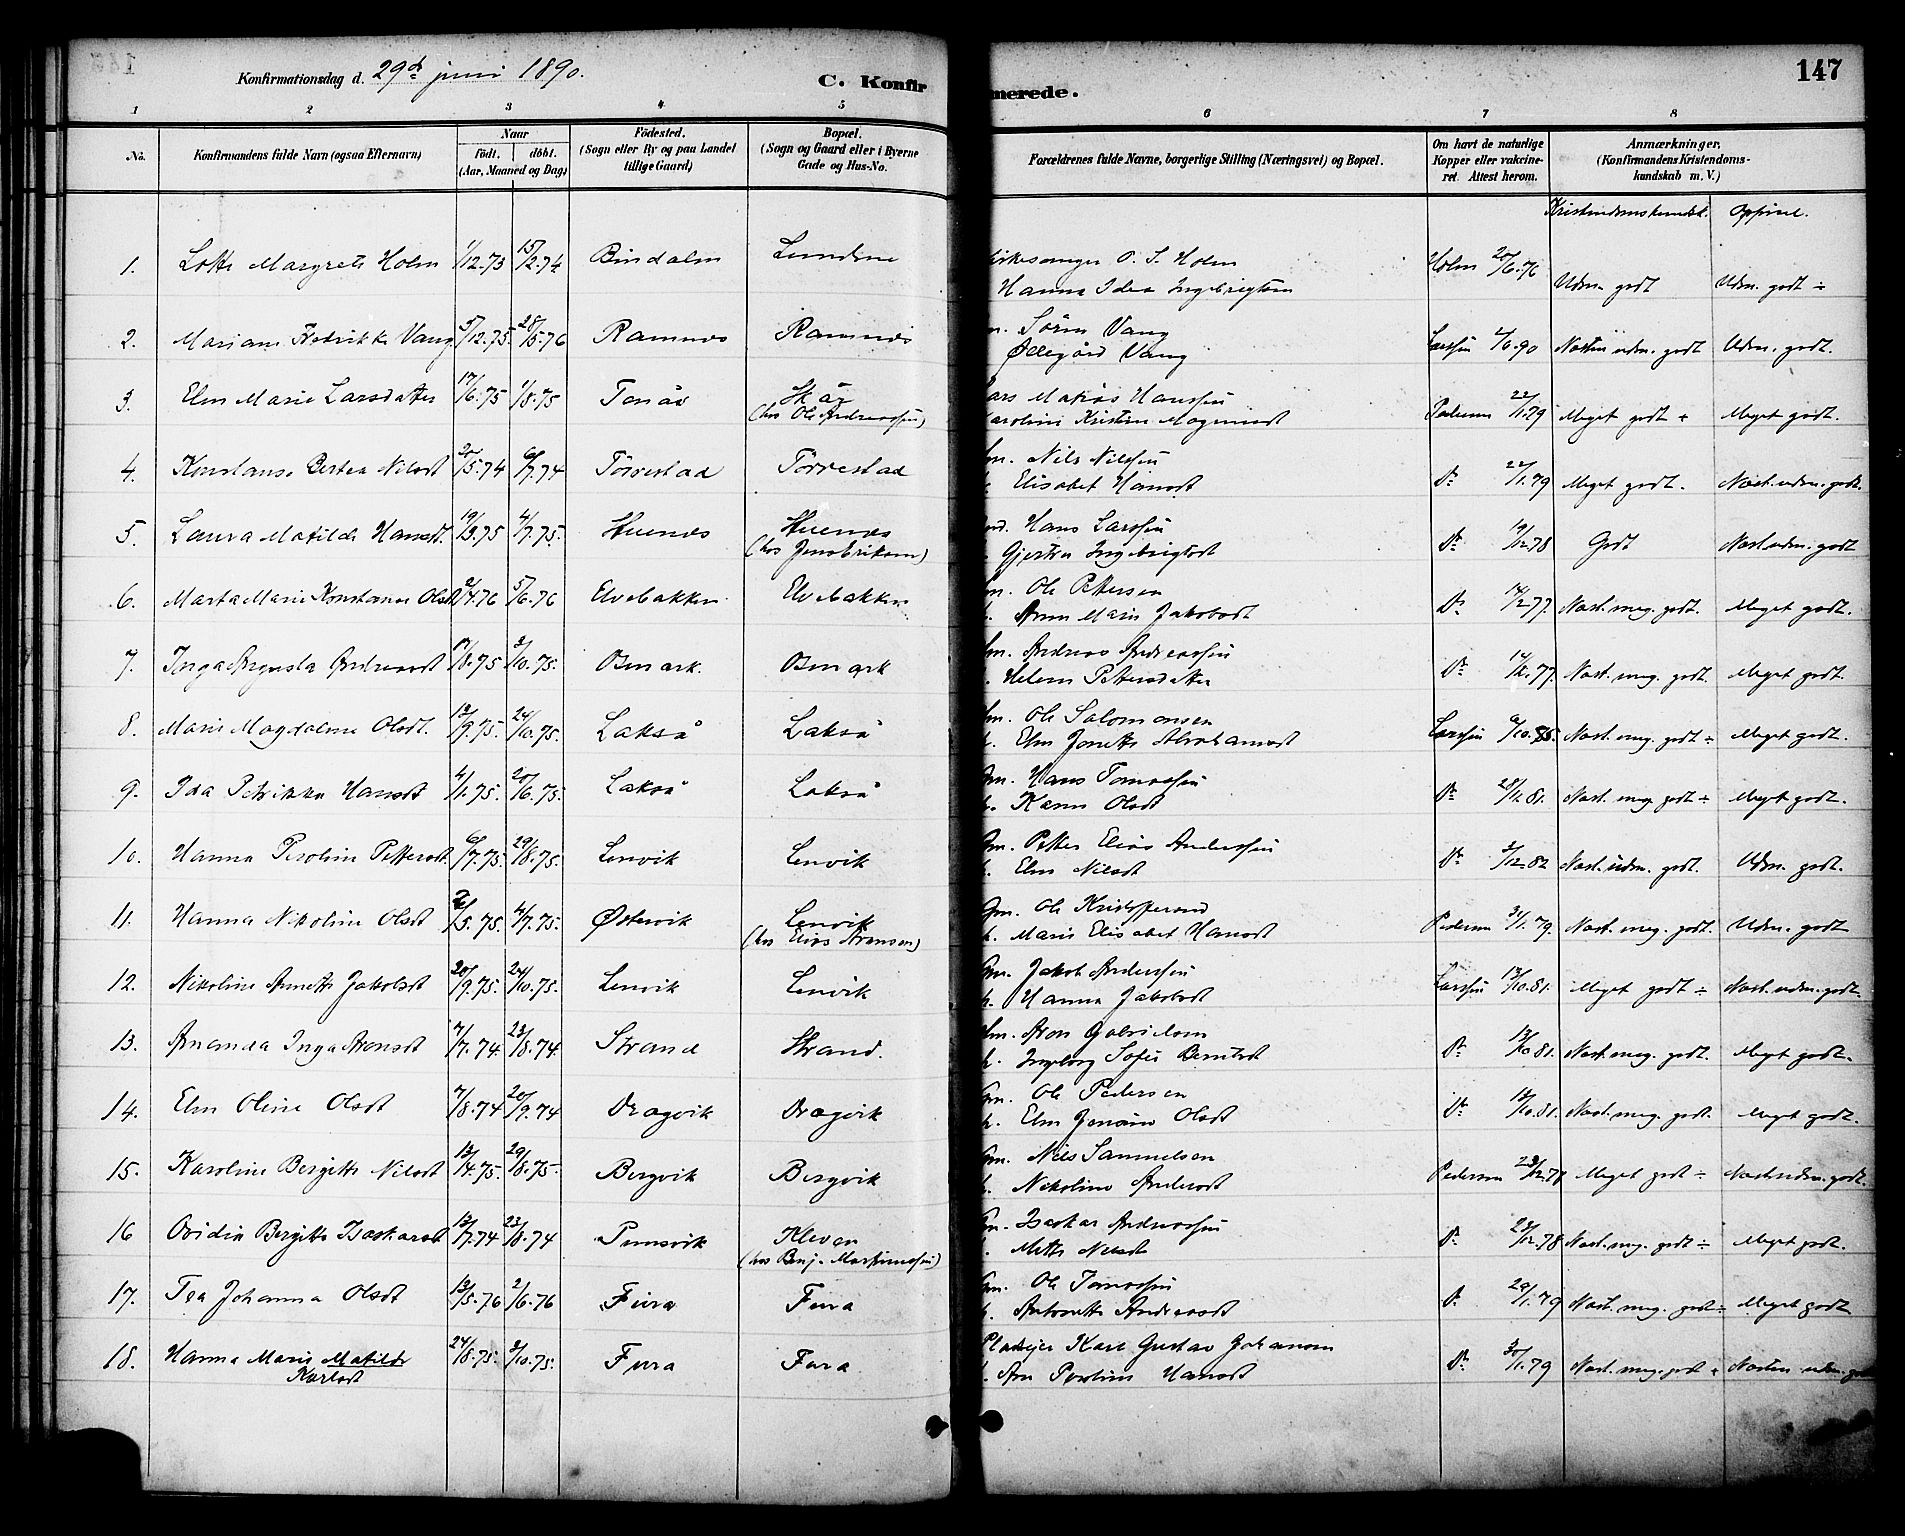 Konfirmationsdag d. 29de juni 1890.
C. Konfirmerede.
147
1 2 3 4 5 6 7 8
No.
Konfirmandens fulde Navn (ogsaa Efternavn)
Naar
født. døbt.
(Aar, Maaned og Dag)
Fødested.
(Sogn eller By og paa Landet
tillige Gaard)
Bopæl.
(Sogn og Gaard eller i Byerne
Gade og Hus-No.
Forældrenes fulde Navne, borgerlige Stilling (Næringsvei) og Bopæl.
Om havt de naturlige
Kopper eller vakcine-
ret. Attest herom.
Anmærkninger,
(Konfirmandens Kristendoms-
kundskab m. V.)
Kristendomskundsk. Opførsel.
1. Lotte Margrete Holm 1/12.73 15/2.74 Bindalen Lundene
Kirkesanger O. S. Holm
Hanna Idea Ingebrigtsen
Holm 20/6.76 Udm. godt Udm. godt ÷
2. Mariane Fredrikke Vang 5/12.75. 28/5.76 Ramnes Ramnes
Søren Vang
Øllegård Vang
Larssen 4/6.90 Næsten udm. godt Udm. godt.
3. Elen Marie Larsdatter 17/6.75 1/8.75 Tenåw Skår
(hos Ole Andreassen)
Lars Matias Hanssen
Karoline Kristine Mogensdt
Pedersen 22/1.79 Meget godt ÷ Meget godt.
4. Konstanse Bertea Nilsdt 20/5.74 6/7.74 Tørrestad Tørrestad
Gm. Nils Nilssen
h. Elisabet Hansdt
Do 22/1.79 Meget godt. Næst. udm. godt.
5. Laura Matilde Hansdt. 19/3.75 4/7.75. Huenes Huenes
(hos Jens Eriksen)
Hans Larssen
Gjertine Ingebrigtsdt
Do 19/12.78 Godt Næst. udm. godt
6. Marta Marie Konstanse Olsdt 2/4.76 5/6.76 Elvebakken Elvebakken
Gm. Ole Pettersen
h. Anne Marie Jakobsdt
Do 14/2.77. Næst. meg. godt. Meget godt.
7. Inga Augusta Andreasdt 17/8.75 3/10.75. Osmark. Osmark
Gm. Andreas Andreassen
h. Helene Pettersdatter
Do 14/2.77. Næst. meg. godt. Meget godt.
8. Marie Magdalene Olsdt. 12/9.75. 24/10.75. Lakså Lakså
Gm. Ole Salomonsen
h. Elen Jonette Abrahamsdt
Larssen 6/10.85. Næst. meg. godt ÷ Meget godt.
9. Ida Petrikke Hansdt 4/1.75. 20/6.75. Lakså Lakså
Gm. Hans Tomassen
h. Karen Olsdt
Do 28/1.81. Næst. meg. godt ÷ Meget godt.
10. Hanna Peroline Pettersdt. 6/7.75. 29/8.75. Lenvik Lenvik
Gm. Petter Elias Anderssen
h. Elen Nilsdt
Do 3/12.82 Næst. udm. godt. Udm. godt.
11. Hanna Nikoline Olsdt 2/5.75. 4/7.75. Østervik Lenvik
(hos Elias Aronsen)
Gm. Ole Kristoffersen
h. Maria Elisabet Hansdt
Pedersen 31/1.79. Næst. meg. godt. Udm. godt
12. Nikoline Anette Jakobsdt 20/9.75. 24/10.75. Lenvik Lenvik
Gm. Jakob Anderssen
h. Hanna Jakobsdt
Larssen 13/10.81. Meget godt ÷ Næst. udm. godt.
13. Amanda Inga Aronsdt 7/7.74. 23/8.74. Strand Strand.
Gm. Aron Gabrielsen
h. Ingeborg Sofie Berntsdt
Do 13/10.81. Næst. meg. godt. Meget godt.
14. Elen Oline Olsdt 7/8.74 20/9.74 Dragvik Dragvik
Gm. Ole Pedersen
h. Elen Jensine Olsdt
Do 13/10.81. Næst. meg. godt. Meget godt.
15. Karoline Bergitte Nilsdt 13/4.75. 29/8.75. Bergvik Bergvik
Gm. Nils Samuelsen
h. Nikoline Andersdt
Pedersen 23/12.78 Meget godt ÷ Næst. udm. godt.
16 Ovidia Bergitte Isaskarsdt 13/7.74 23/8.74 Punsvik Kleven
(hos Benj. Martinussen)
Gm. Isaskar Andreassen
h. Mette Nilsdt
Do 23/12.78 Næst. meg. godt ÷ Meget godt.
17. Tea Johanna Olsdt 13/5.76 2/6.76 Fura Fura
Gm. Ole Tomassen
h. Antonette Andreasdt
Do 29/1.79 Næst. meg. godt ÷ Meget godt
18. Hanna Marie Matilde
Karlsdt 24/8.75. 3/10.75. Fura Fura
Pladsejer Karl Gustav Johansen
h. Ane Peroline Hansdt
Do 30/1.79 Næst. meg. godt ÷ Næsten udm. godt